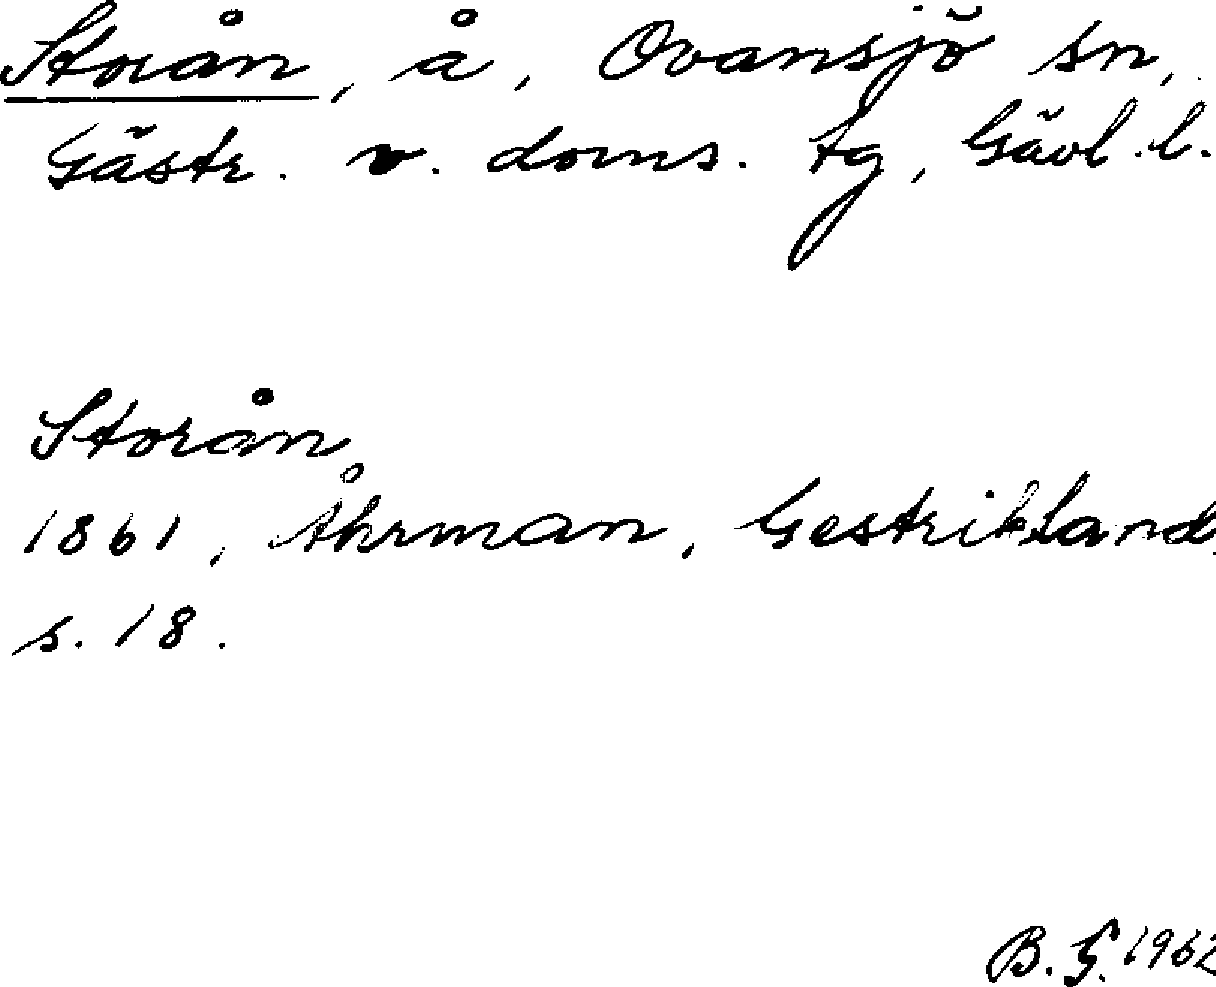 Storån, å, Ovansjö sn,
Gästr. v. doms. tg, Gävl. l.
Storån
1861, Åhrman, Gestrikland,
s. 18.
B. G. 1962